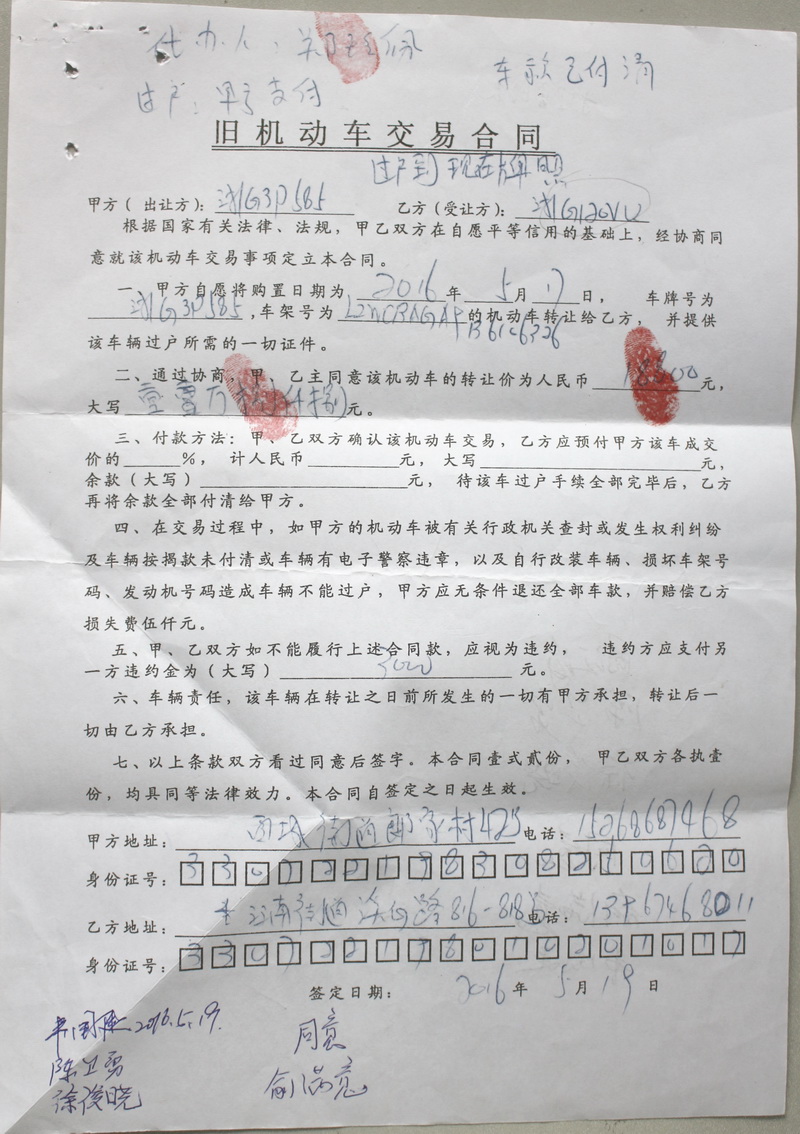 代办人：郑
车款已付清
过户：甲方支付
旧机动车交易合同
过户到现在牌照
甲方（出让方）：浙G3P585 乙方（受让方）：浙G120VU
根据国家有关法律、法规，甲乙双方在自愿平等信用的基础上，经协商同
意就该机动车交易事项定立本合同。
一、甲方自愿将购置日期为 2016 年 5 月 17 日， 车牌号为
浙G3P585，车架号为 的机动车转让给乙方， 并提供
该车辆过户所需的一切证件。
二、通过协商，甲、乙主同意该机动车的转让价为人民币 元，
大写 元。
三、付款方法：甲、乙双方确认该机动车交易，乙方应预付甲方该车成交
价的 %， 计人民币 元，大写 元，
余款（大写） 元， 待该车过户手续全部完毕后，乙方
再将余款全部付清给甲方。
四、在交易过程中，如甲方的机动车被有关行政机关查封或发生权利纠纷
及车辆按揭款未付清或车辆有电子警察违章，以及自行改装车辆、损坏车架号
码、发动机号码造成车辆不能过户，甲方应无条件退还全部车款，并赔偿乙方
损失费伍仟元。
五、甲、乙双方如不能履行上述合同款，应视为违约， 违约方应支付另
一方违约金为（大写） 元。
六、车辆责任，该车辆在转让之日前所发生的一切有甲方承担，转让后一
切由乙方承担。
七、以上条款双方看过同意后签字。本合同壹式贰份， 甲乙双方各执壹
份，均具同等法律效力。本合同自签定之日起生效。
甲方地址： 西城街道郎家村425 电话：15268687468
身份证号：
乙方地址： 816-818 电话：
身份证号：
签定日期： 2016 年 5 月 19 日
2016.5.19.
同意
陈卫勇
徐俊晓
俞满意